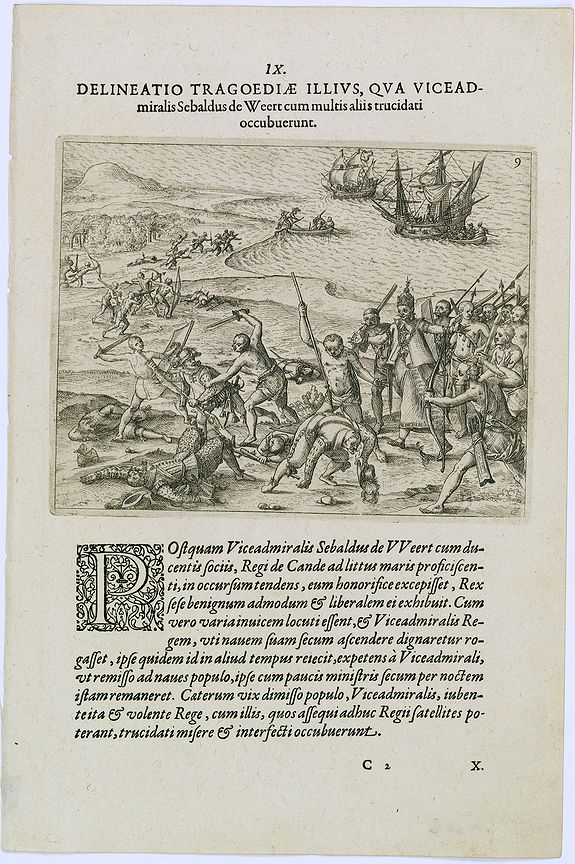 IX.
DELINEATIO TRAGOEDIÆ ILLIVS, QVA VICEAD-
miralis Sebaldus de Weert cum multis aliis trucidati
occubuerunt.
9
POstquam Viceadmiralis Sebaldus de VVeert cum du-
centis sociis, Regi de Cande ad littus maris proficiscen-
ti, in occursum tendens, eum honorifice excepisset, Rex
sese benignum admodum & liberalem ei exhibuit. Cum
vero varia inuicem locuti essent, & Viceadmiralis Re-
gem, vti nauem suam secum ascendere dignaretur ro-
gasset, ipse quidem id in aliud tempus reiecit, expetens à Viceadmirali,
vt remisso ad naues populo, ipse cum paucis ministris secum per noctem
istam remaneret. Cæterum vix dimisso populo, Viceadmiralis, iuben-
te ita & volente Rege, cum illis, quos assequi adhuc Regii satellites po-
terant, trucidati misere & interfecti occubuerunt.
C 2 X.